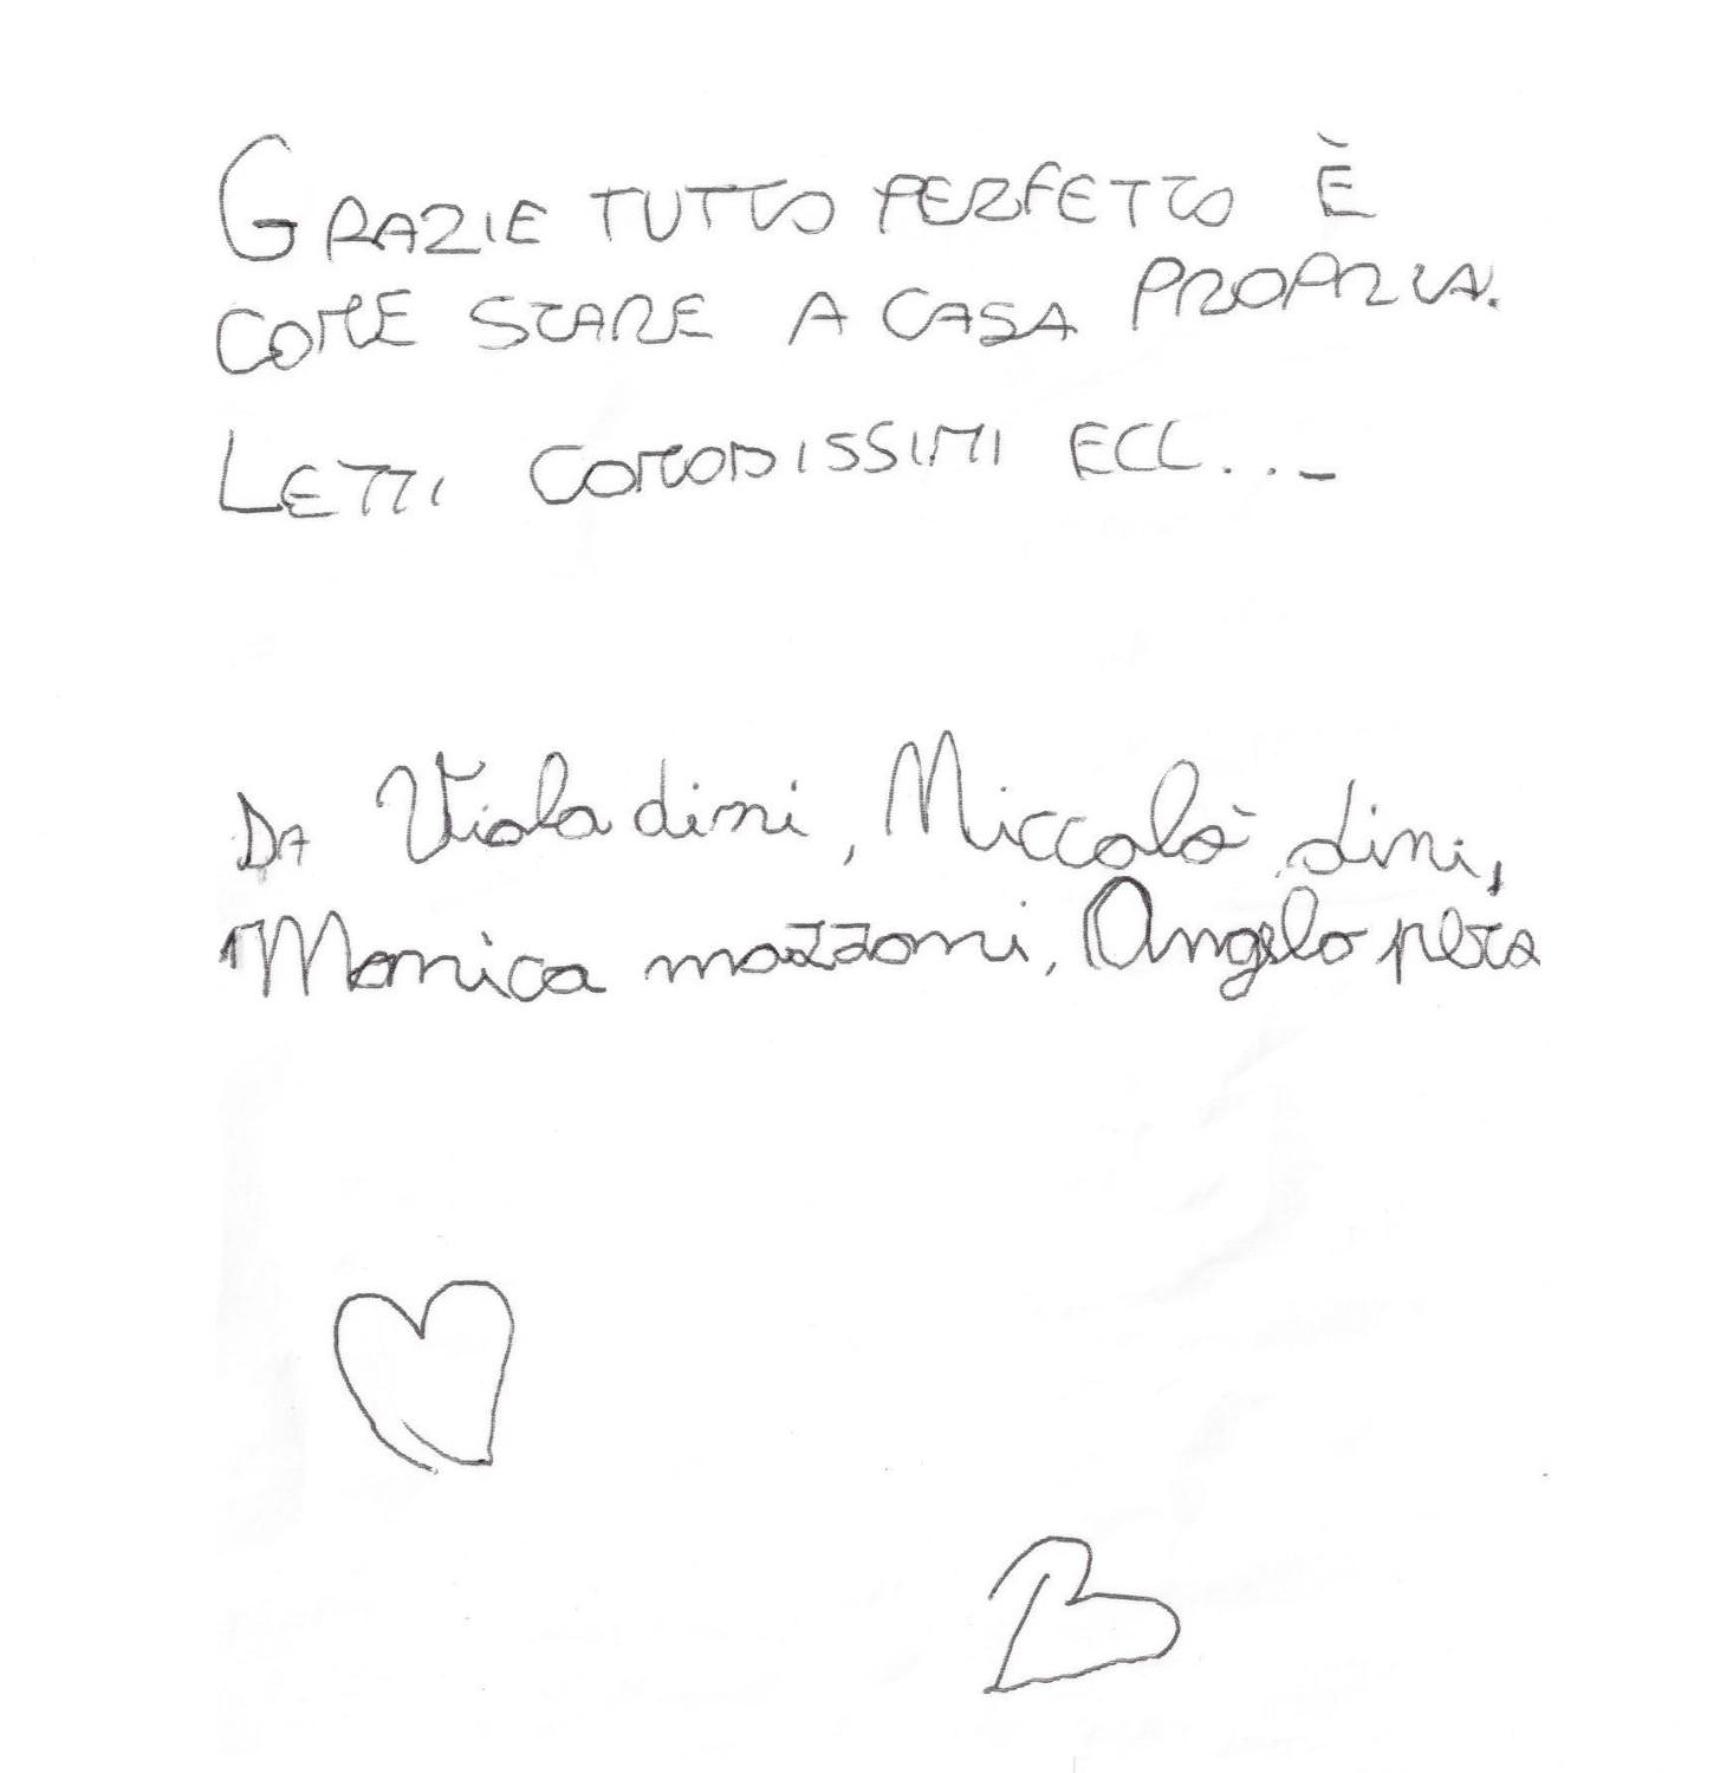 GRAZIE TUTTO PERFETTO È
COME STARE A CASA PROPRIA.
LETTI COMODISSIMI ECC...
DA Viola dini, Niccolò dini,
Monica mazzoni, Angelo pera